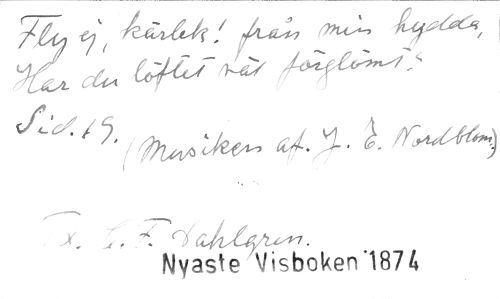 Fly ej, kärlek! från min hydda,
Har du löftet rät förglömt?
Sid. 19.
(Musiken af. J. E. Nordblom.)
Tx. C. F. Dahlgren.
Nyaste Visboken 1874